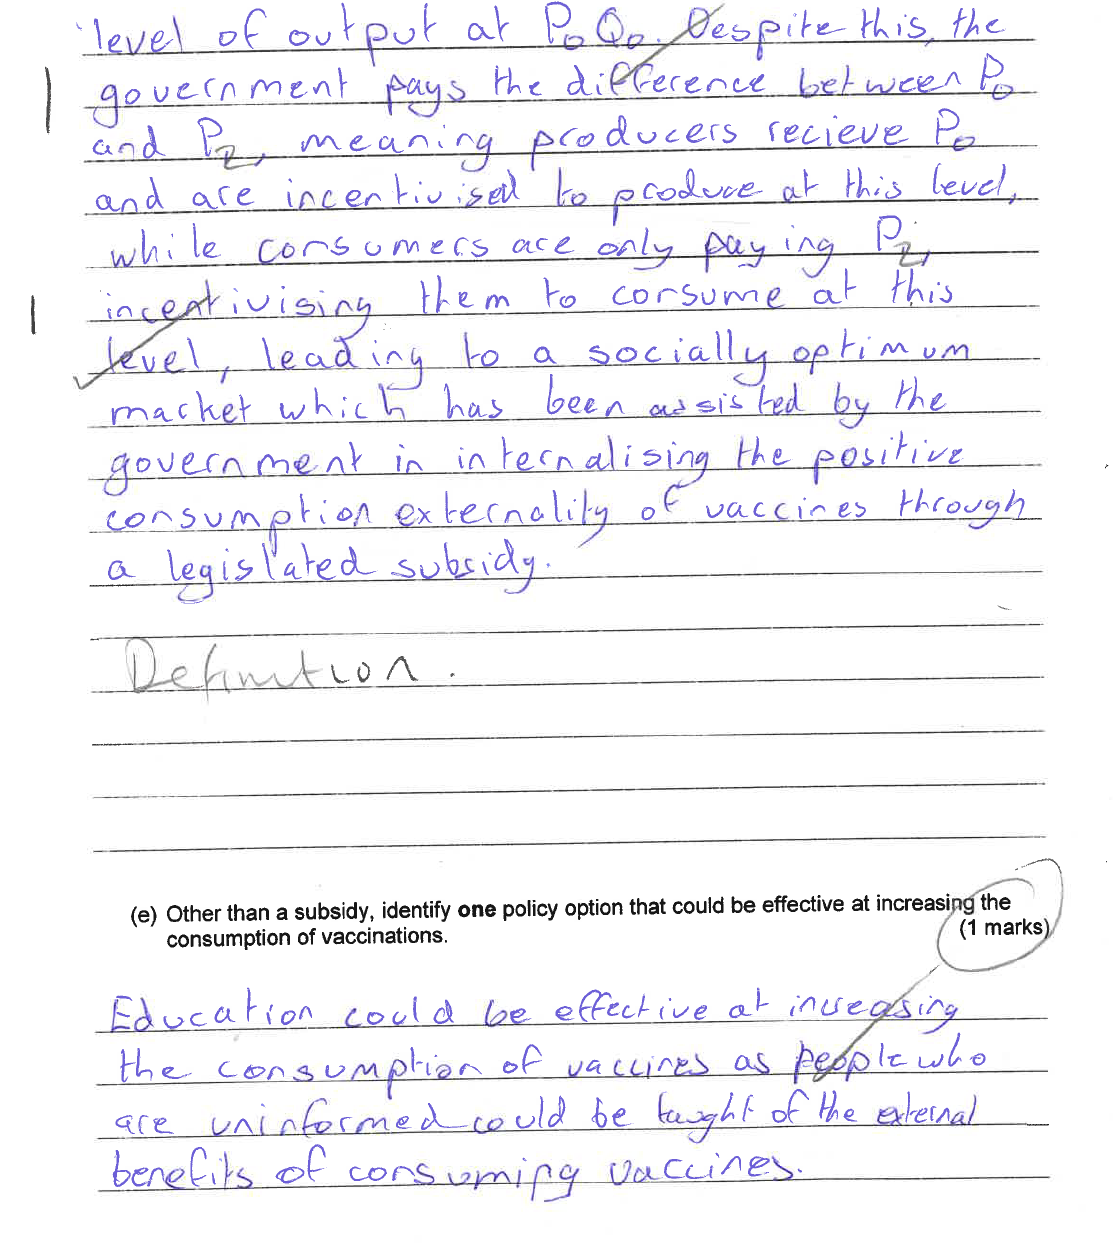 level of output at P₀Q₀. Despite this, the
government pays the difference between P₀
and P₂, meaning producers recieve P₀
and are incentivised to produce at this level,
while consumers are only paying P₂,
incentivising them to consume at this
level, leading to a socially optimum
market which has been assisted by the
government in internalising the positive
consumption externality of vaccines through
a legislated subsidy.
Definition.
(e) Other than a subsidy, identify one policy option that could be effective at increasing the
consumption of vaccinations. (1 marks)
Education could be effective at increasing
the consumption of vaccines as people who
are uninformed could be taught of the external
benefits of consuming vaccines.